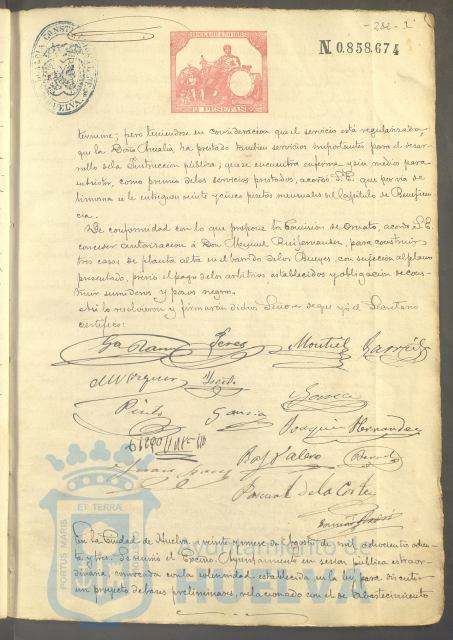 232-1
N 0.858.674
ALCALDIA CONSTITUCIONAL DE HUELVA
2 PESETAS
término; pero teniendose en consideracion que el servicio está regularizado
que la Doña Amalia, ha prestado tambien servicios importantes para el desar-
rollo de la Instruccion pública; que se encuentra enferma y sin medios para
subsistir, como premio de los servicios prestados, acordó S.E. que por via de
limosna se le entreguen veinte y cinco pesetas mensuales del Capítulo de Beneficen-
cia.
De conformidad con lo que propone la Comision de Ornato, acordó S.E.
conceder autorizacion á Don Manuel Ruifernandez, para construir
tres casas de planta alta en el barrio de los Bueyes, con sujecion al plano
presentado, previo el pago de los arbitrios establecidos y obligacion de cons-
truir sumideros y pozos negros.
Asi lo resolvieron y firmarán dichos Señores de que yo el Secretario
certifico:
Peres Montiel Garcia
Pinto Garcia
Joaquin Hernandez
Valero
Pascual de la Corte
En la Ciudad de Huelva a veinte y nueve de Agosto de mil ochocientos ochen-
ta y tres. Se reunió el Excmo Ayuntamiento en sesion pública estraor-
dinaria, convocada con la solemnidad establecida en la ley, para discutir
un proyecto de bases preliminares, relacionado con el de abastecimiento
PORTUS MARIS ET TERRAE
Ayuntamiento de
HUELVA